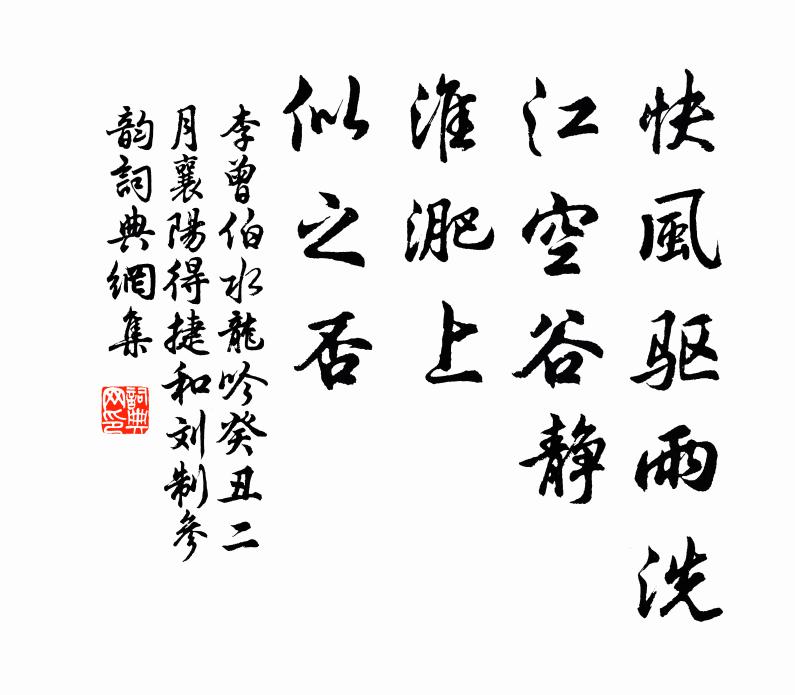 快風驱雨洗
江空谷静
淮淝上
似之否
李曾伯水龍吟癸丑二
月襄陽得捷和刘制參
韵詞典網集
詞典网印